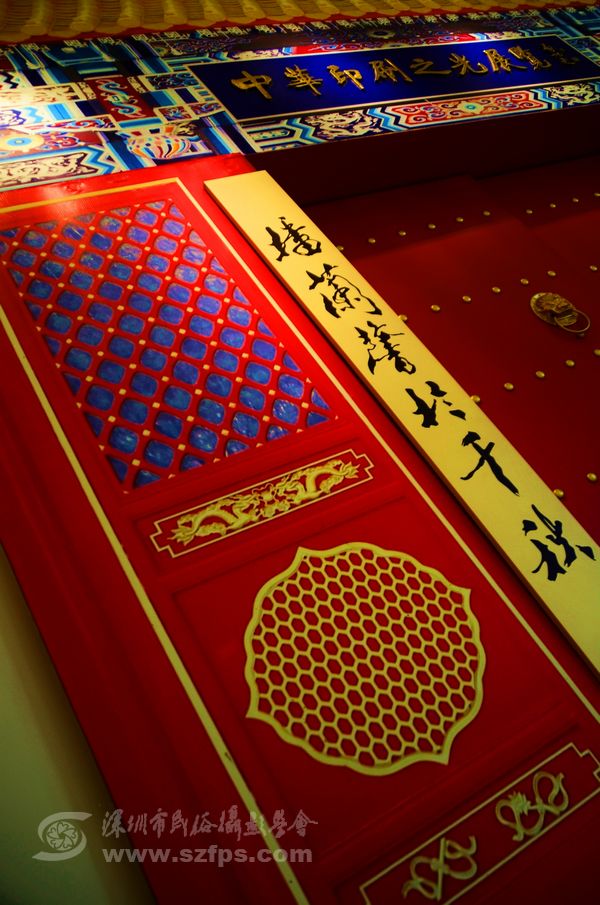 中華印刷之光展覽
播蘭馨於千秋
深圳市民俗攝影學會
www.szfps.com